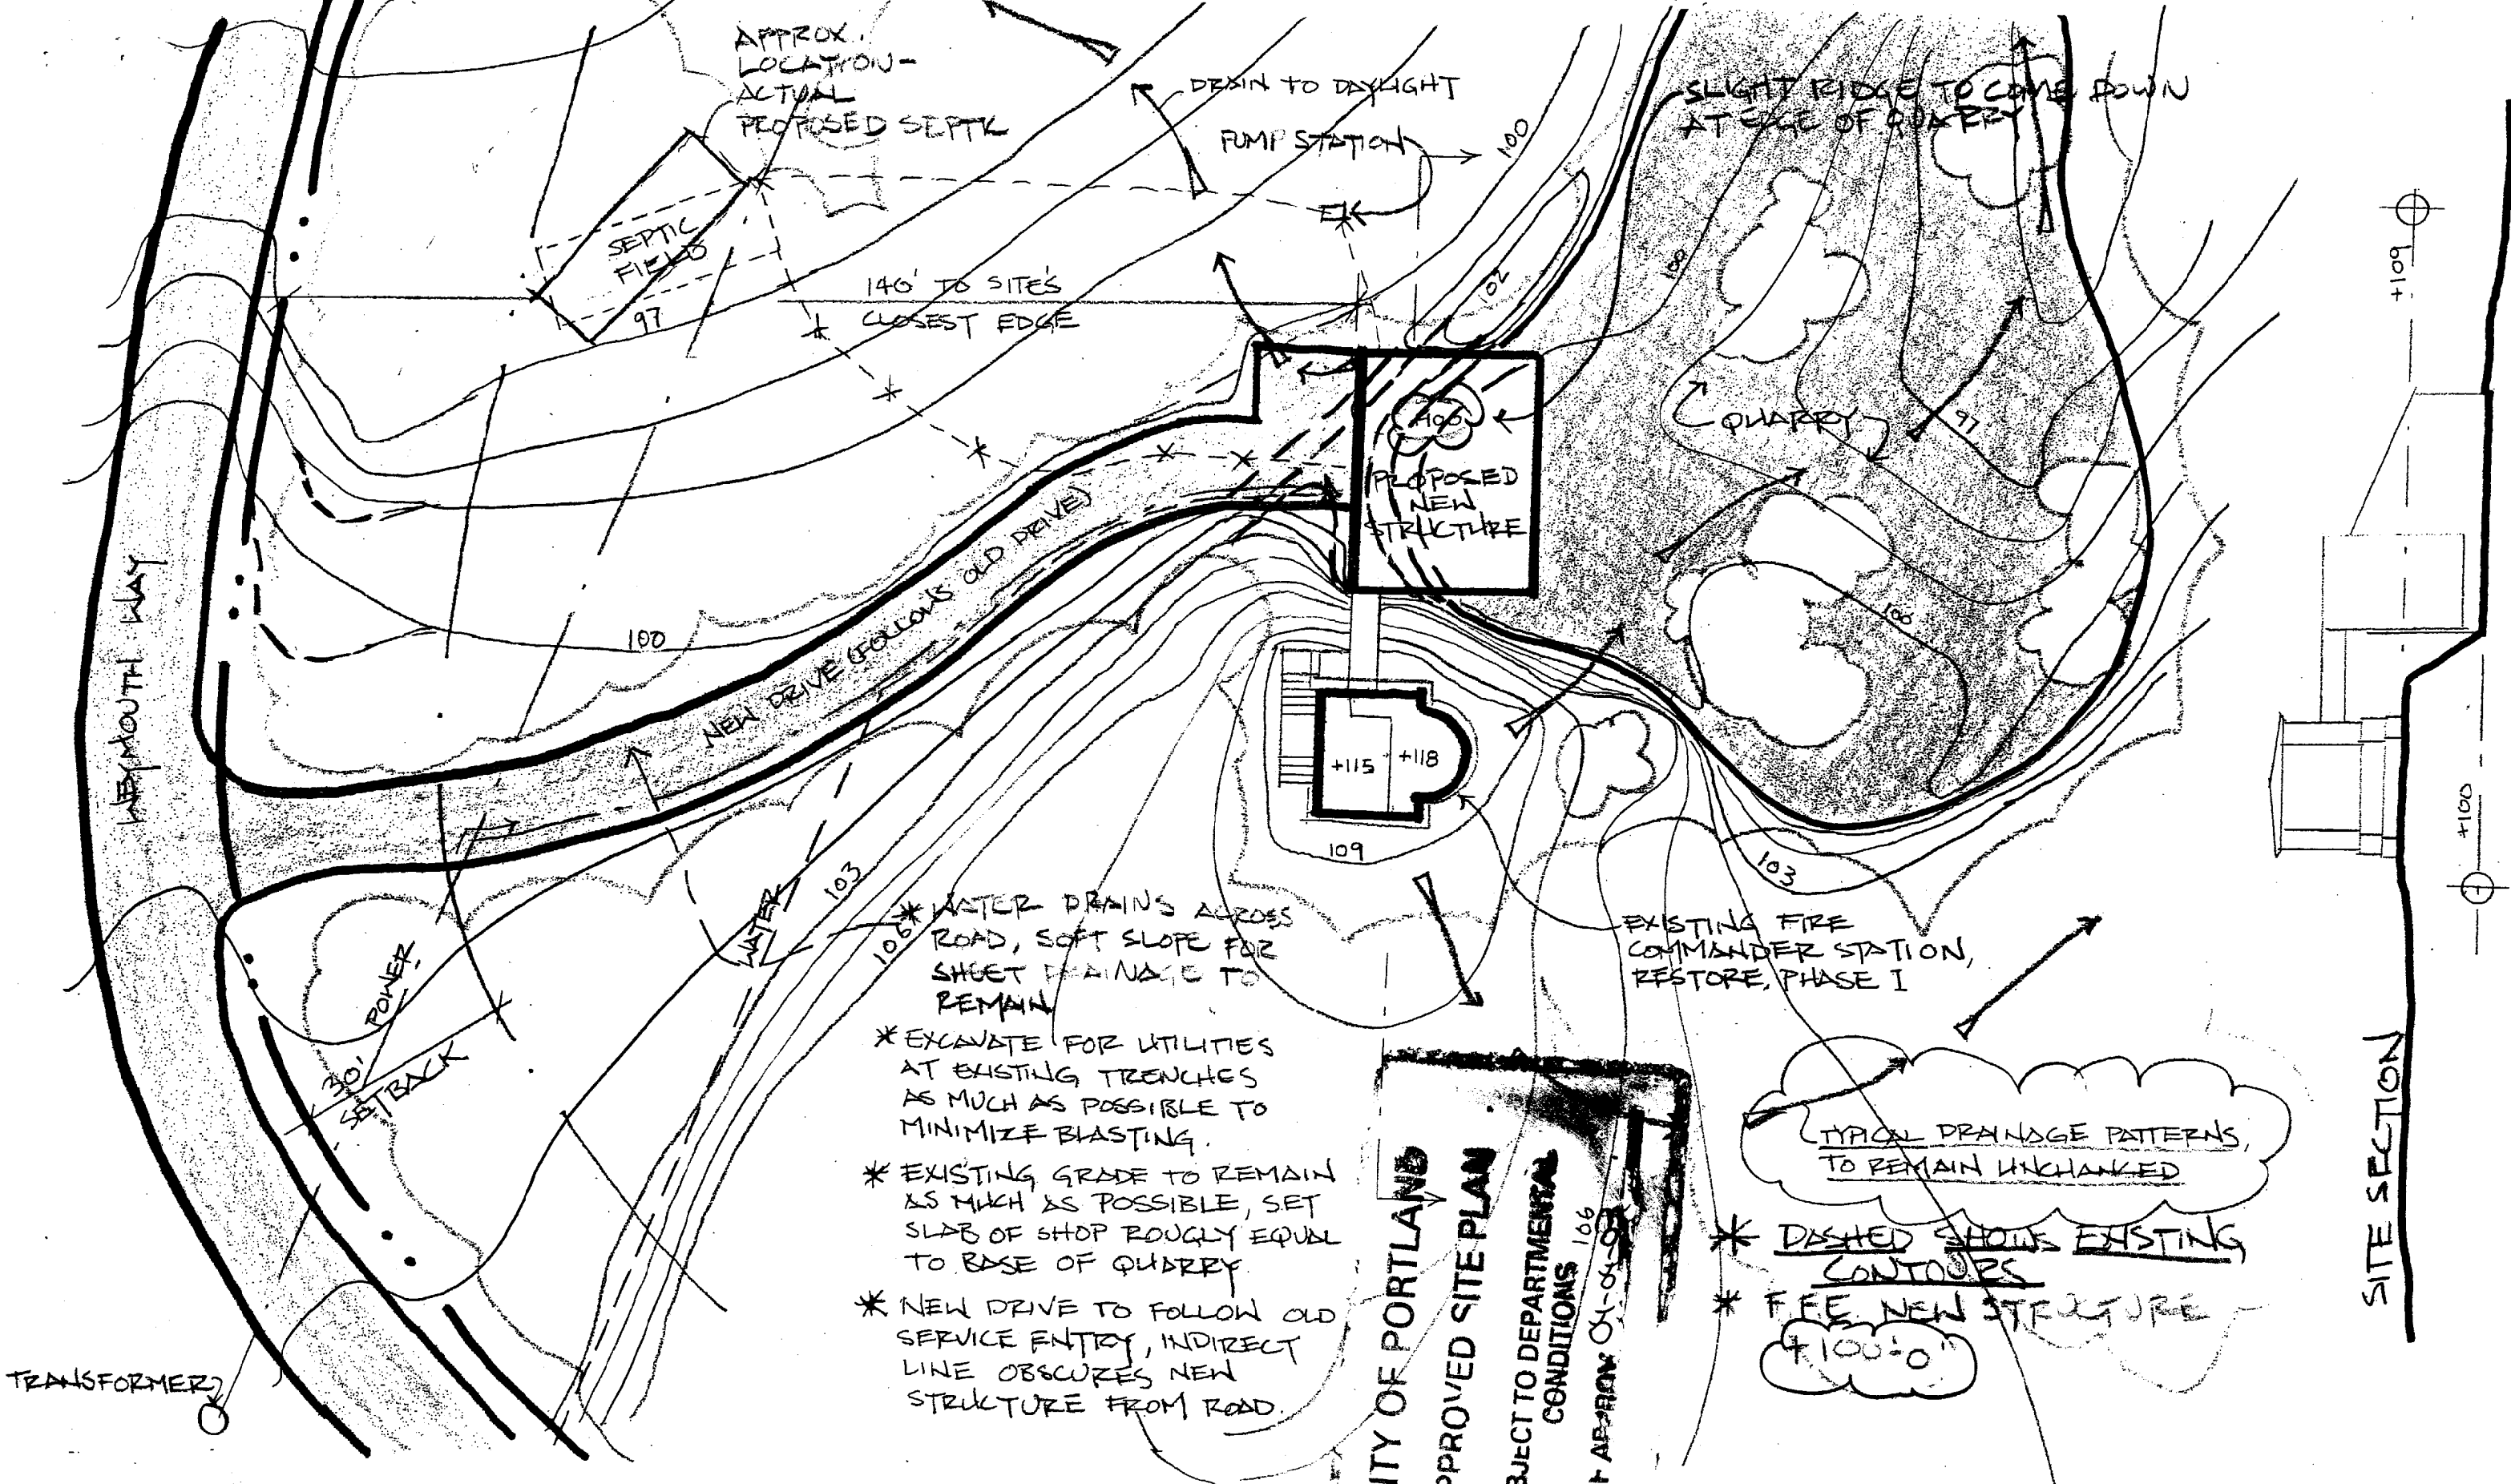 APPROX.
LOCATION-
ACTUAL
PROPOSED SEPTIC
DRAIN TO DAYLIGHT
PUMP STATION
100
SLIGHT RIDGE TO COME DOWN
AT EDGE OF QUARRY
SEPTIC
FIELD
97
140' TO SITE'S
CLOSEST EDGE
102
100
+109
QUARRY
97
PROPOSED
NEW
STRUCTURE
NEW DRIVE (FOLLOWS OLD DRIVE)
WEYMOUTH WAY
100
100
+115
+118
109
103
+100
103
106
WATER
POWER
30'
SETBACK
* WATER DRAINS ACROSS
ROAD, SOFT SLOPE FOR
SHEET DRAINAGE TO
REMAIN
* EXCAVATE FOR UTILITIES
AT EXISTING TRENCHES
AS MUCH AS POSSIBLE TO
MINIMIZE BLASTING.
* EXISTING GRADE TO REMAIN
AS MUCH AS POSSIBLE, SET
SLAB OF SHOP ROUGLY EQUAL
TO BASE OF QUARRY
* NEW DRIVE TO FOLLOW OLD
SERVICE ENTRY, INDIRECT
LINE OBSCURES NEW
STRUCTURE FROM ROAD.
EXISTING FIRE
COMMANDER STATION,
RESTORE, PHASE I
TYPICAL DRAINAGE PATTERNS,
TO REMAIN UNCHANGED
* DASHED SHOWS EXISTING
CONTOURS
* F.F.E. NEW STRUCTURE
+100'-0"
106
ITY OF PORTLAND
PPROVED SITE PLAN
BJECT TO DEPARTMENTAL
CONDITIONS
TRANSFORMER
SITE SECTION